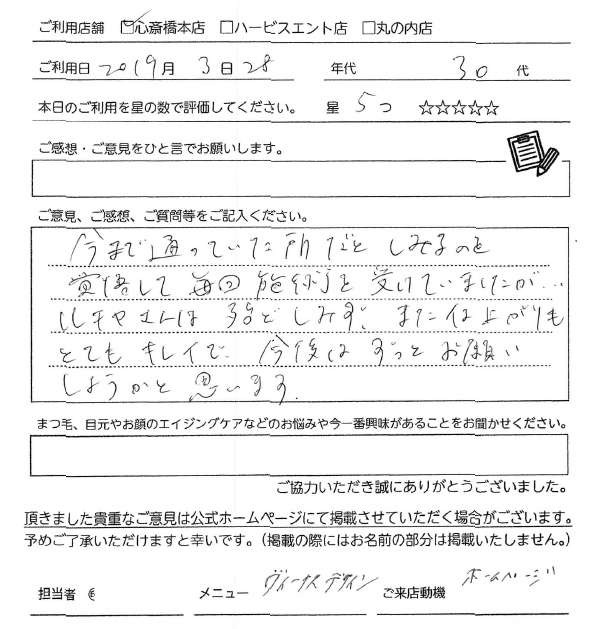 ご利用店舗 ☑心斎橋本店 □ハービスエント店 □丸の内店
ご利用日 2019月 3日 28 年代 30代
本日のご利用を星の数で評価してください。 星 5つ ☆☆☆☆☆
ご感想・ご意見をひと言でお願いします。
ご意見、ご感想、ご質問等をご記入ください。
今まで通っていた所だと しみるのを
覚悟して毎回施術を受けていましたが…
ルキヤさんは 殆どしみず、また仕上がりも
とても キレイで 今後は ずっと お願い
しようかと 思います.
まつ毛、目元やお顔のエイジングケアなどのお悩みや今一番興味があることをお聞かせください。
ご協力いただき誠にありがとうございました。
頂きました貴重なご意見は公式ホームページにて掲載させていただく場合がございます。
予めご了承いただけますと幸いです。（掲載の際にはお名前の部分は掲載いたしません。）
担当者 メニュー ヴィーナスデザイン ご来店動機 ホームページ